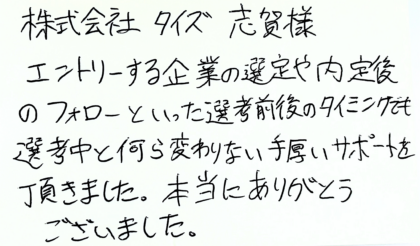 株式会社 タイズ 志賀様
エントリーする企業の選定や内定後
のフォローといった選考前後のタイミングでも
選考中と何ら変わりない手厚いサポートを
頂きました。本当にありがとう
ございました。